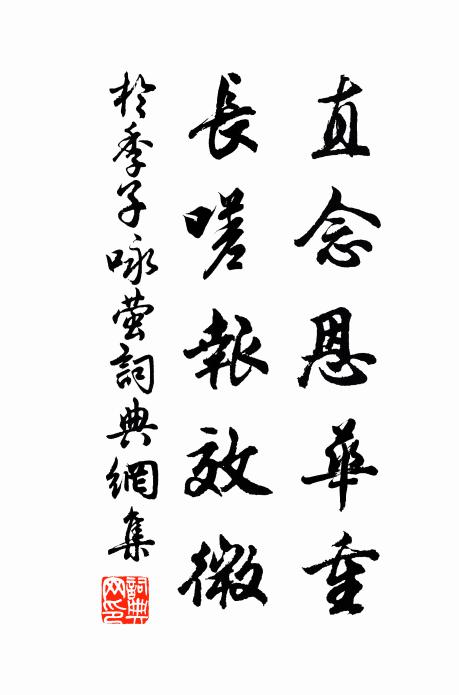 直念恩華重
長嗟報效微
於季子咏萤詞典網集
詞典網印